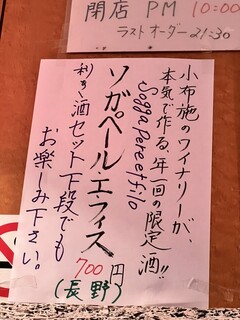 閉店 PM 10:00
ラストオーダー 21:30
小布施のワイナリーが、
本気で作る、年一回の限定酒!!
Sogga pere et filo
ソガペール・エフィス
700円
(長野)
利き酒セット下段でも
お楽しみ下さい。